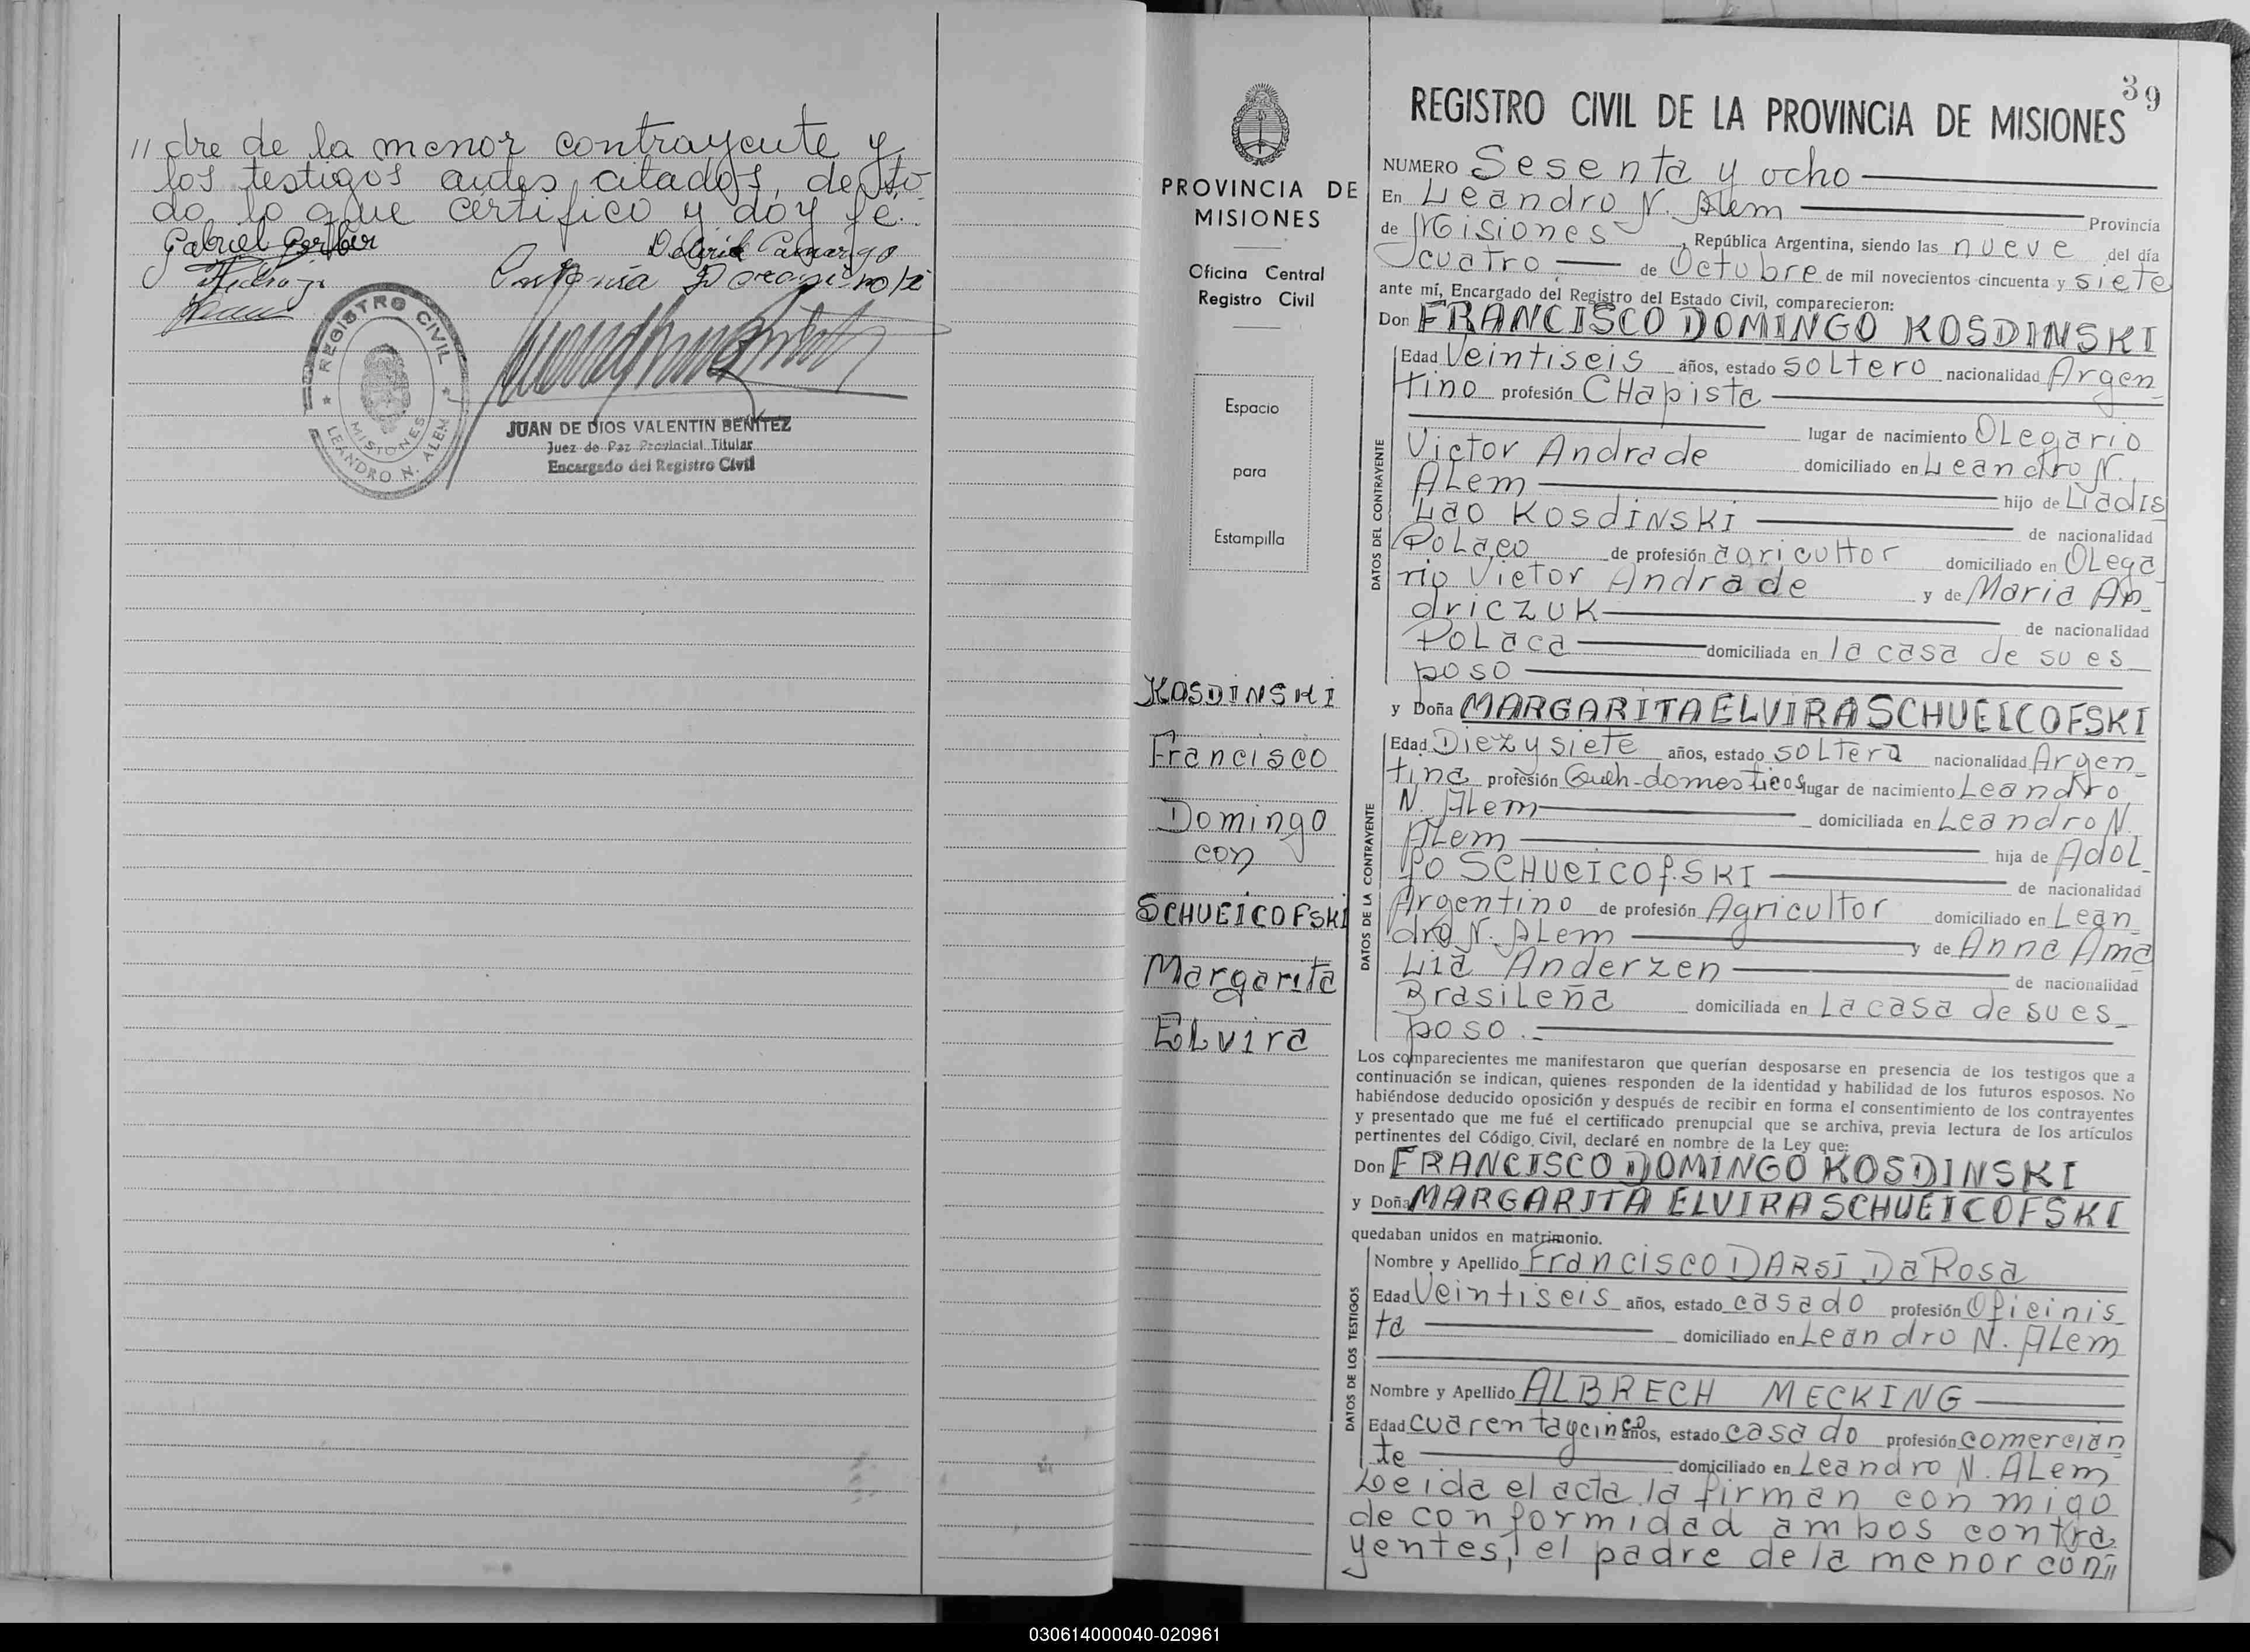 // dre de la menor contrayente y
los testigos antes citados, de to-
do lo que certifico y doy fe.-
Gabriel Gerber
Camargo
REGISTRO CIVIL
MISIONES
LEANDRO N. ALEM
JUAN DE DIOS VALENTIN BENITEZ
Juez de Paz Provincial Titular
Encargado del Registro Civil
PROVINCIA DE
MISIONES
Oficina Central
Registro Civil
Espacio
para
Estampilla
KOSDINSKI
Francisco
Domingo
con
SCHUEICOFSKI
Margarita
ELvira
39
REGISTRO CIVIL DE LA PROVINCIA DE MISIONES
NUMERO Sesenta y ocho
En Leandro N. Alem Provincia
de Misiones, República Argentina, siendo las nueve del día
cuatro de Octubre de mil novecientos cincuenta y siete
ante mí, Encargado del Registro del Estado Civil, comparecieron:
Don FRANCISCO DOMINGO KOSDINSKI
DATOS DEL CONTRAYENTE
Edad Veintiseis años, estado soltero nacionalidad Argen-
tino profesión CHapista
lugar de nacimiento OLegario
Victor Andrade domiciliado en Leandro N.
ALem hijo de Ladis
Lao KosdiNSKI de nacionalidad
PoLaco de profesión agricultor domiciliado en OLega
rio Victor Andrade y de Maria An-
driczuk de nacionalidad
PoLaca domiciliada en la casa de su es-
poso
y Doña MARGARITA ELVIRA SCHUEICOFSKI
DATOS DE LA CONTRAYENTE
Edad Diez y siete años, estado soltera nacionalidad Argen-
tina profesión Queh-domesticos lugar de nacimiento Leandro
N. ALem domiciliada en Leandro N.
ALem hija de AdoL-
fo SCHUeICOfSKI de nacionalidad
Argentino de profesión Agricultor domiciliado en Lean-
dro N. ALem y de Anna Ama
Lia Anderzen de nacionalidad
BrasiLeña domiciliada en La casa de su es-
poso.-
Los comparecientes me manifestaron que querían desposarse en presencia de los testigos que a
continuación se indican, quienes responden de la identidad y habilidad de los futuros esposos. No
habiéndose deducido oposición y después de recibir en forma el consentimiento de los contrayentes
y presentado que me fué el certificado prenupcial que se archiva, previa lectura de los artículos
pertinentes del Código Civil, declaré en nombre de la Ley que:
Don FRANCISCO DOMINGO KOSDINSKI
y Doña MARGARITA ELVIRA SCHUEICOFSKI
quedaban unidos en matrimonio.
DATOS DE LOS TESTIGOS
Nombre y Apellido Francisco DARSI Da Rosa
Edad Veintiseis años, estado casado profesión Oficinis-
ta domiciliado en Leandro N. ALem
Nombre y Apellido ALBRECH MECKING
Edad cuarentaycinco años, estado casado profesión comercian
te domiciliado en Leandro N. ALem
Leida el acta la firman con migo
de conformidad ambos contra-
yentes, el padre de la menor con//
030614000040-020961